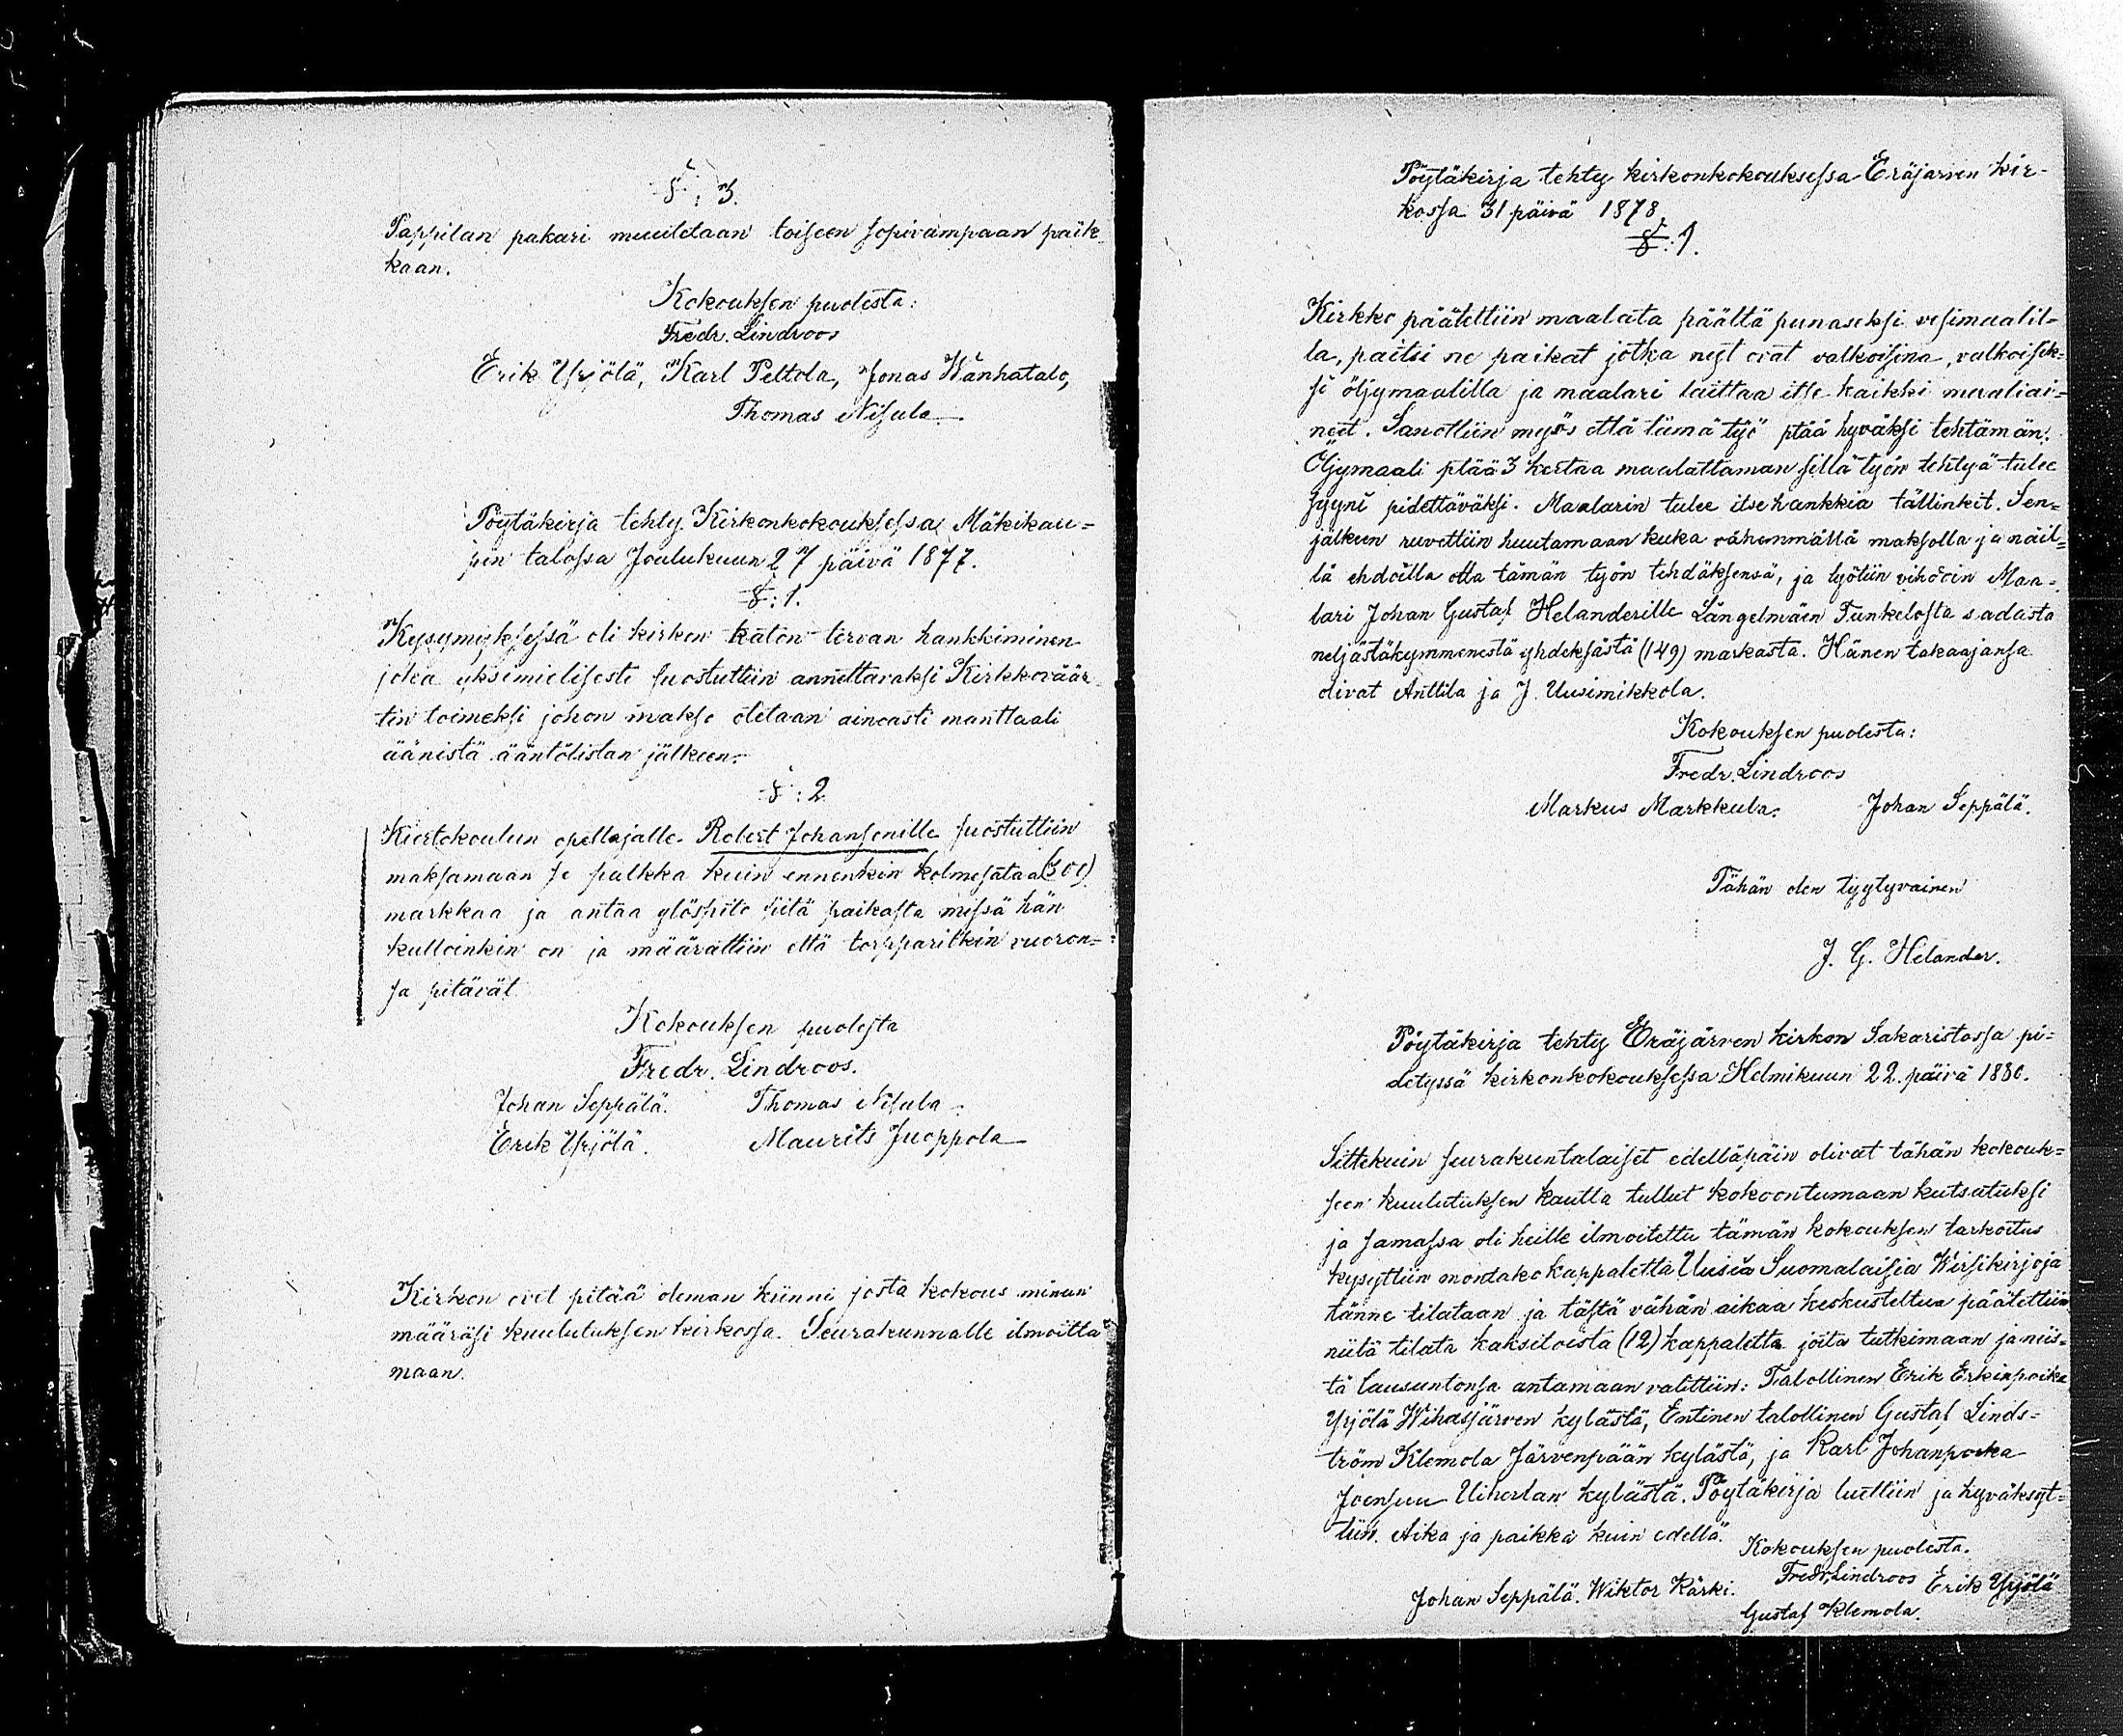 §: 3.
Pappilan pakari muutetaan toiseen sopivampaan paik-
kaan.
Kokouksen puolesta:
Fredr. Lindroos
Erik Yrjölä, Karl Peltola, Jonas Wanhatalo,
Thomas Nisula

Pöytäkirja tehty Kirkonkokouksessa Mäkikau=
pin talossa Joulukuun 27 päivä 1877.
§: 1.
Kysymyksessä oli kirkon katon tervan hankkiminen
joka yksimielisesti suostuttiin annettavaksi Kirkkoväär
tin toimeksi johon makso otetaan ainoasti manttaali
äänistä ääntölistan jälkeen.
§: 2
Kiertokoulun opettajalle Robert Johansonille suostuttiin
maksamaan se palkka kuin ennenkin kolmesataa (300)
markkaa ja antaa ylöspito siitä paikasta missä hän
kulloinkin on ja määrättiin että torpparitkin vuoron=
sa pitävät
Kokouksen puolesta
Fredr. Lindroos.
Johan Seppälä. Thomas Nisula.
Erik Yrjölä. Maurits Juoppola

Kirkon ovet pitää oleman kiinni josta kokous minun
määräsi kuulutuksen kirkossa Seurakunnalle ilmoitta
maan.

Pöytäkirja tehty kirkonkokouksessa Eräjärven kir-
kossa 31 päivä 1878.
§: 1.
Kirkko päätettiin maalata päältä punaseksi vesimaalil=
la, paitsi ne paikat jotka nyt ovat valkoisina, valkoisek=
si öljymaalilla ja maalari laittaa itse kaikki maaliai=
neet. Sanottiin myös että tämä työ ptää hyväksi tehtämän.
Öljymaali ptää 3 kertaa maalattaman sillä työn tehtyä tulee
syyni pidettäväksi. Maalarin tulee itse hankkia tällinkit. Sen=
jälkeen ruvettiin huutamaan kuka vähemmällä maksolla ja näil=
lä ehdoilla otta tämän työn tehdäksensä, ja lyötiin vihdoin Maa=
lari Johan Gustaf Helanderille Längelmäen Tunkelosta sadasta
neljästäkymmenestä yhdeksästä (149) markasta. Hänen takaajansa
olivat Anttila ja J. Uusimikkola.
Kokouksen puolesta:
Fredr. Lindroos
Markus Markkula. Johan Seppälä.
Tähän olen tyytyvainen
J. G. Helander.

Pöytäkirja tehty Eräjärven kirkon Sakaristossa pi=
detyssä kirkonkokouksessa Helmikuun 22. päivä 1880.

Sittekuin seurakuntalaiset edelläpäin olivat tähän kokouk=
seen kuulutuksen kautta tullut kokoontumaan kutsutuksi
ja samassa oli heille ilmoitettu tämän kokouksen tarkoitus
kysyttiin montako kappaletta Uusia Suomalaisia Wirsikirjoja
tänne tilataan ja tästä vähän aikaa keskusteltua päätettiin
niitä tilata kaksitoista (12) kappaletta joita tutkimaan ja niis=
tä lausuntonsa antamaan valittiin: Talollinen Erik Erkinpoika
Yrjölä Wihasjärven kylästä, Entinen talollinen Gustaf Linds=
tröm Klemola Järvenpään kylästä, ja Karl Johanpoika
Joensuu Uiherlan kylästä. Pöytäkirja luettiin ja hyväksyt=
tiin. Aika ja paikka kuin edellä.
Kokouksen puolesta.
Fredr. Lindroos Erik Yrjölä
Johan Seppälä. Wiktor Kärki.
Gustaf Klemola.